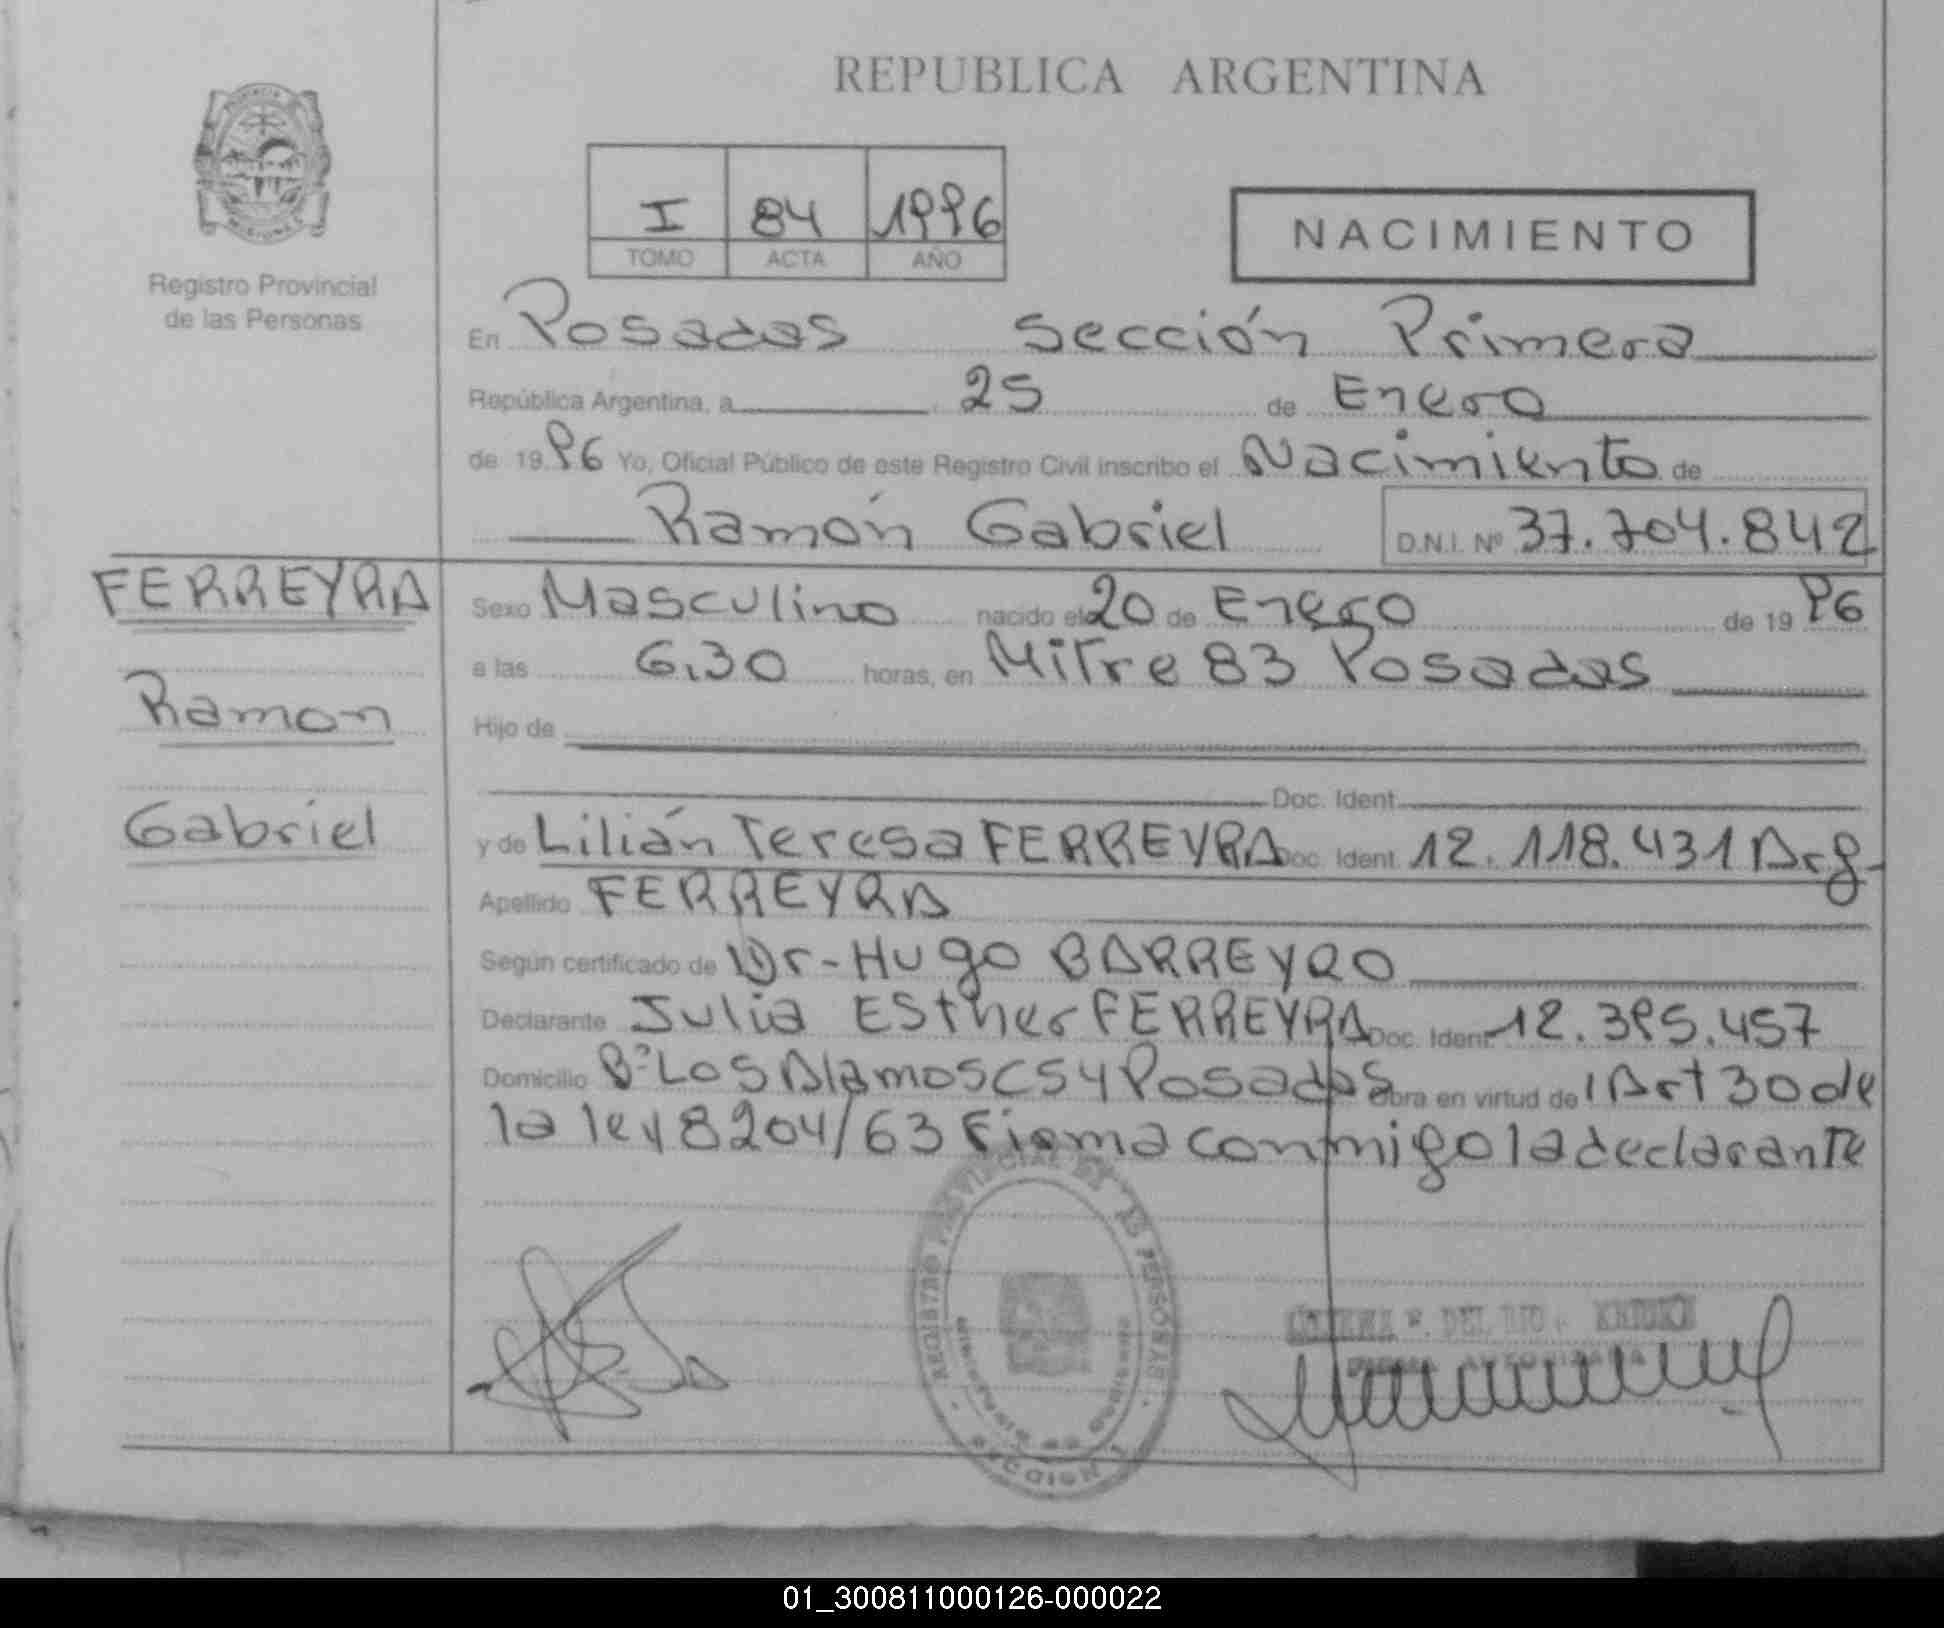 REPUBLICA ARGENTINA
PROVINCIA
MISIONES
Registro Provincial
de las Personas
I 84 1996
TOMO ACTA AÑO
NACIMIENTO
En Posadas Sección Primera
República Argentina, a 25 de Enero
de 19 96 Yo, Oficial Público de este Registro Civil inscribo el Nacimiento de
Ramón Gabriel D.N.I. Nº 37.704.842
FERREYRA
Ramon
Gabriel
Sexo Masculino nacido el 20 de Enero de 19 96
a las 6,30 horas, en Mitre 83 Posadas
Hijo de
Doc. Ident.
y de Lilián Teresa FERREYRA Doc. Ident. 12.118.431 Arg.
Apellido FERREYRA
Según certificado de Dr- Hugo BARREYRO
Declarante Julia Esther FERREYRA Doc. Ident. 12.395.457
Domicilio Bº Los Alamos CS 4 Posadas Obra en virtud de l Art 30 de
la ley 8204/63 Firma conmigo la declarante
REGISTRO PROVINCIAL DE LAS PERSONAS
F. DEL RIO
FIRMA AUTORIZADA
01_300811000126-000022